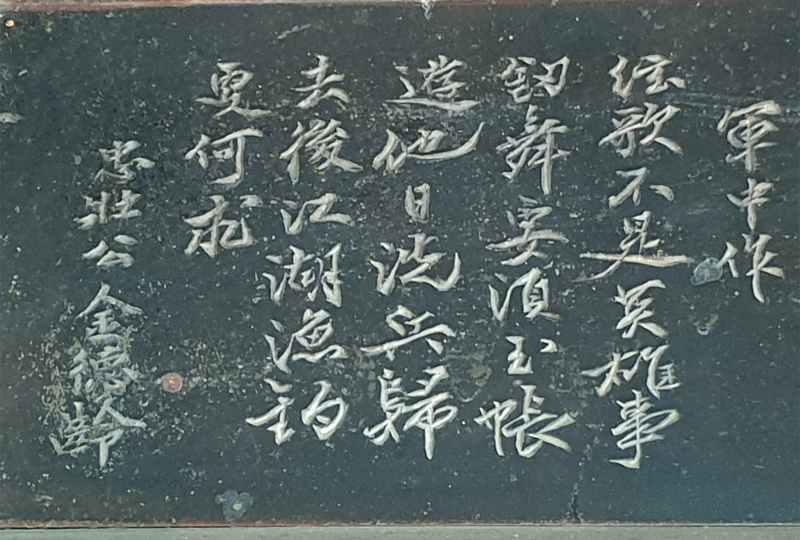 軍中作
絃歌不是英雄事
釼舞要須玉帳
遊他日洗兵歸
去後江湖漁釣
更何求
忠壯公 金德齡